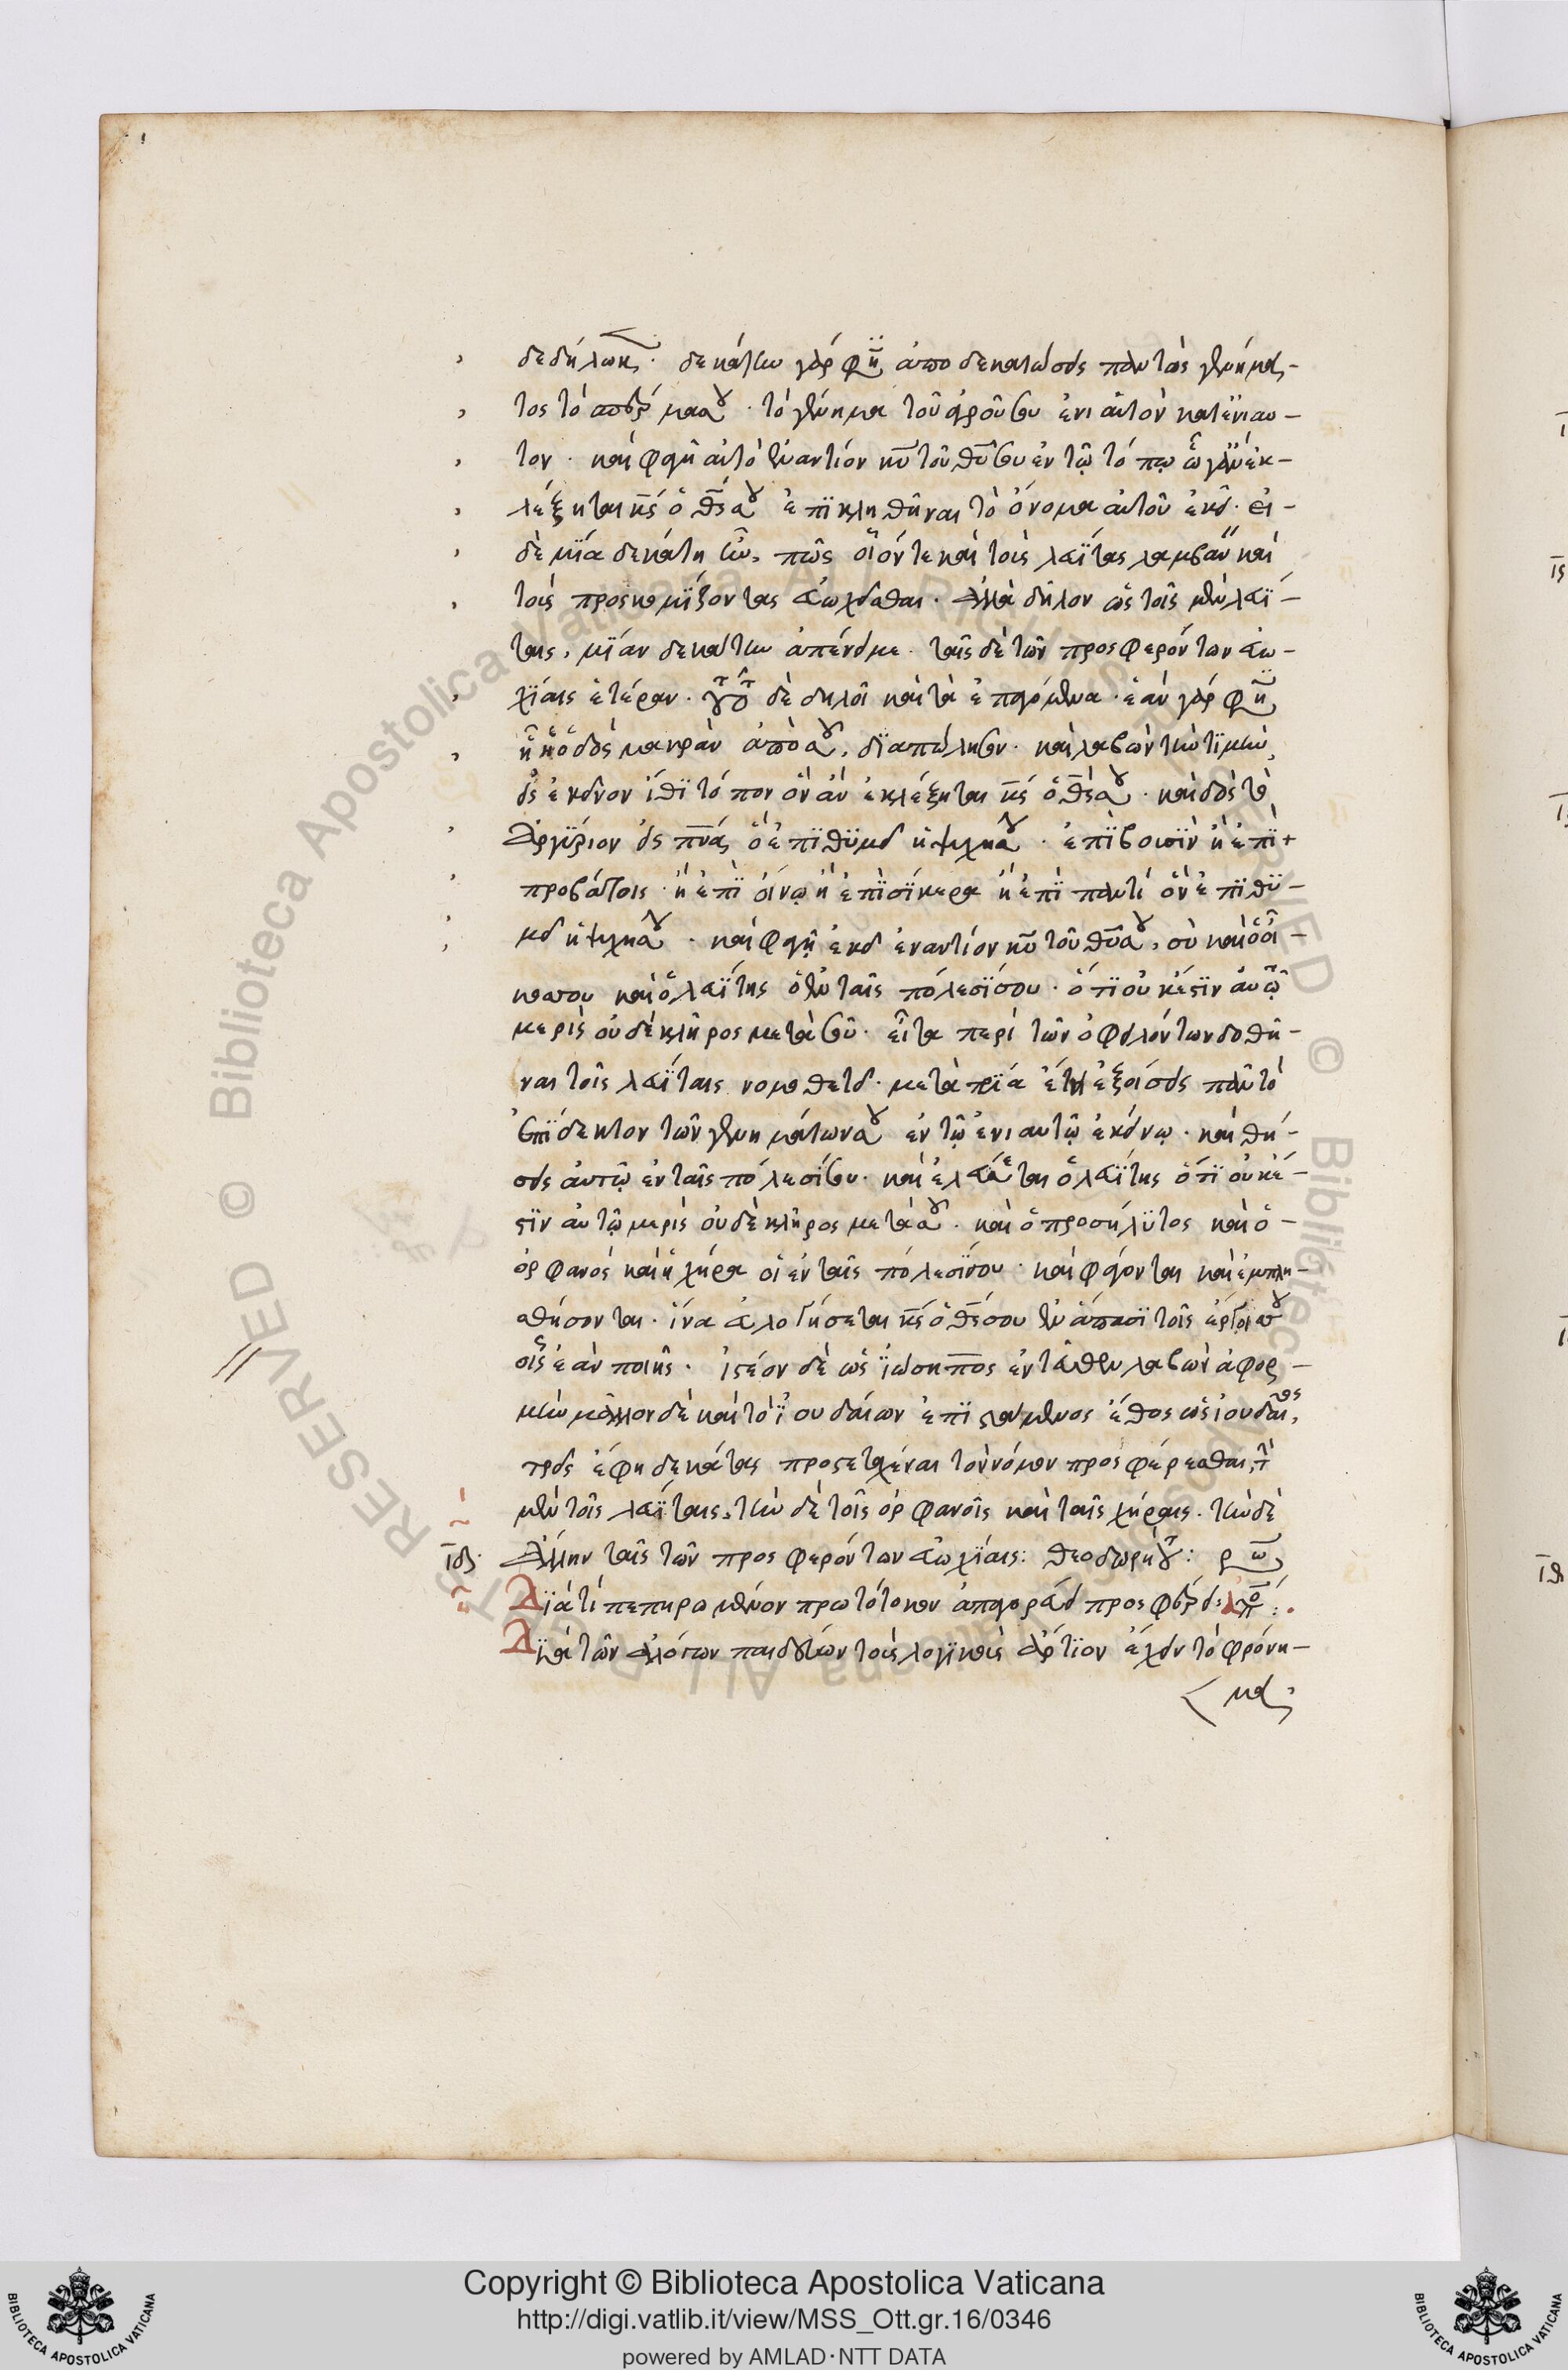 δεδήλωκε. δεκάτην γάρ φη ἀποδεκατώσεις παντὸς γεννήμα-
τος τὸ σπέρματός σου. τὸ γέννημα τοῦ ἀγροῦ σου ἐνιαυτὸν κατενιαυ-
τον. καὶ φαγῇ αὐτὸ ἐναντίον κυ τοῦ θυ σου ἐν τῷ τόπῳ ᾧ ἐὰν ἐκ-
λέξηται κς ὁ θς σου ἐπικληθῆναι τὸ ὄνομα αὐτοῦ ἐκεῖ. εἰ-
δὲ μία δεκάτη ἦν, πῶς οἷόν τε καὶ τοὺς λευΐτας λαμβάνειν καὶ
τοὺς προσκομίζοντας εὐωχεῖσθαι. ἀλλὰ δῆλον ὡς τοῖς μὲν λευΐ-
ταις, μίαν δεκάτην ἀπένειμε. ταῖς δὲ τῶν προσφερόντων εὐω-
χίαις ἑτέραν. τοῦτο δὲ δηλοῖ καὶ τὰ ἐπαγόμενα. ἐὰν γάρ φη
ᾖ ἡ ὁδὸς μακρὰν ἀπὸ σοῦ, διαπώλησον. καὶ λαβὼν τὴν τιμὴν
εἰς ἐκεῖνον ἴθι τόπον ὃν ἂν ἐκλέξηται κς ὁ θς σου. καὶ δὸς τὸ
ἀργύριον εἰς πᾶν ὃ ἐπιθυμεῖ ἡ ψυχή σου. ἐπὶ βουσὶν ἢ ἐπὶ
προβάτοις. ἢ ἐπὶ οἴνῳ ἢ ἐπὶ σίκερα ἢ ἐπὶ παντὶ ὃν ἐπιθυ-
μεῖ ἡ ψυχή σου. καὶ φαγῇ ἐκεῖ ἐναντίον κυ τοῦ θυ σου, σὺ καὶ ὁ οἶ-
κος σου καὶ ὁ λευΐτης ὁ ἐν ταῖς πόλεσί σου. ὅτι οὐκ ἔστιν αὐτῷ
μερὶς οὐδὲ κλῆρος μετὰ σοῦ. εἶτα περὶ τῶν ὀφειλόντων δοθῆ-
ναι τοῖς λευΐταις νομοθετεῖ. μετὰ τρία ἔτη ἐξοίσεις πᾶν τὸ
ἐπιδέκτον τῶν γεννημάτων σου ἐν τῷ ἐνιαυτῷ ἐκείνῳ. καὶ θή-
σεις αὐτῷ ἐν ταῖς πόλεσί σου. καὶ ἐλεύσεται ὁ λευΐτης ὅτι οὐκ ἔ-
στιν αὐτῷ μερὶς οὐδὲ κλῆρος μετὰ σοῦ. καὶ ὁ προσήλυτος καὶ ὁ
ὀρφανὸς καὶ ἡ χήρα οἱ ἐν ταῖς πόλεσί σου. καὶ φάγονται καὶ ἐμπλη-
σθήσονται. ἵνα εὐλογήσεται κς ὁ θς σου ἐν ἅπασι τοῖς ἔργοις σου
οἷς ἐὰν ποιῇς. ἰστέον δὲ ὡς ϊώσηππος ἐντεῦθεν λαβὼν ἀφορ-
μὴν μᾶλλον δὲ καὶ τὸ ϊουδαίων ἐπιστάμενος ἔθος ὡς ἰουδαῖος,
τρεῖς ἔφη δεκάτας προστεταχέναι τὸν νόμον προσφέρεσθαι, τὴν
μὲν τοῖς λευΐταις, τὴν δὲ τοῖς ὀρφανοῖς καὶ ταῖς χήραις. τὴν δὲ
ιδ. ἄλλην ταῖς τῶν προσφερόντων εὐωχίαις: θεοδωρήτου: ἐρώ
Διατί πεπηρωμένον πρωτότοκον ἀπαγορεύει προσφέρειν: ἀπο:
Διὰ τῶν ἀλόγων παιδεύων τοὺς λογικοὺς ἄρτιον ἔχειν τὸ φρόνη-
μα,
Copyright © Biblioteca Apostolica Vaticana
http://digi.vatlib.it/view/MSS_Ott.gr.16/0346
powered by AMLAD·NTT DATA